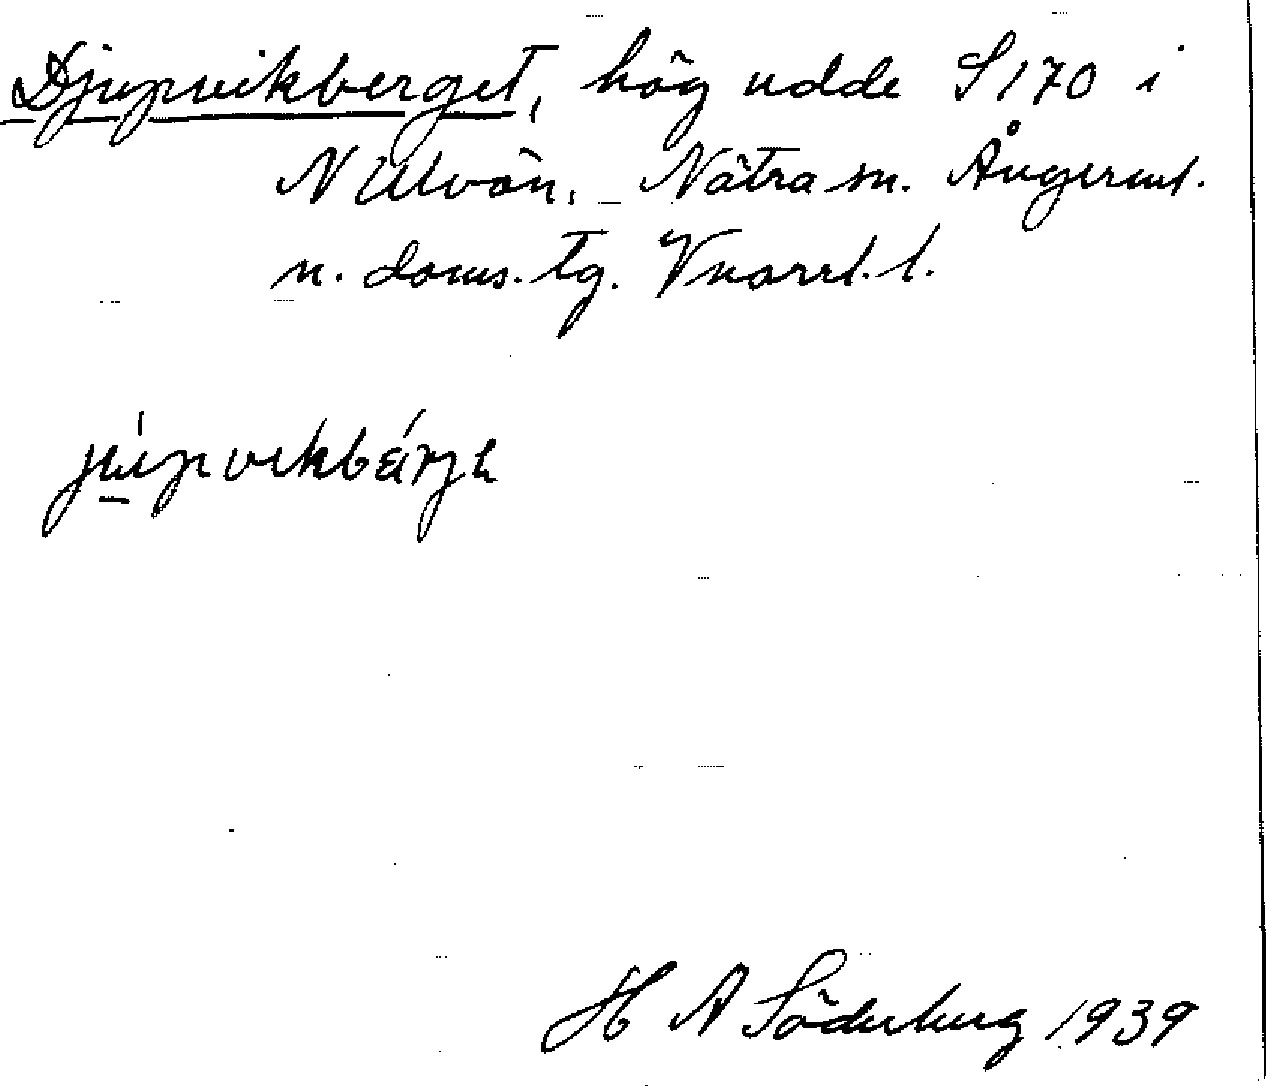 Djupvikberget, hög udde S 170 i
N Ulvön, Nätra sn. Ångerml.
n. doms. tg. Vnorrl. l.
H A Söderberg 1939